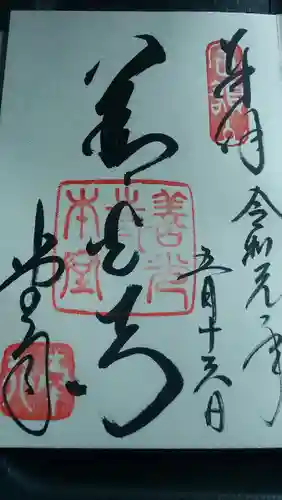 奉拝
定額山
令和元年
五月十六日
善光寺
善光寺本堂